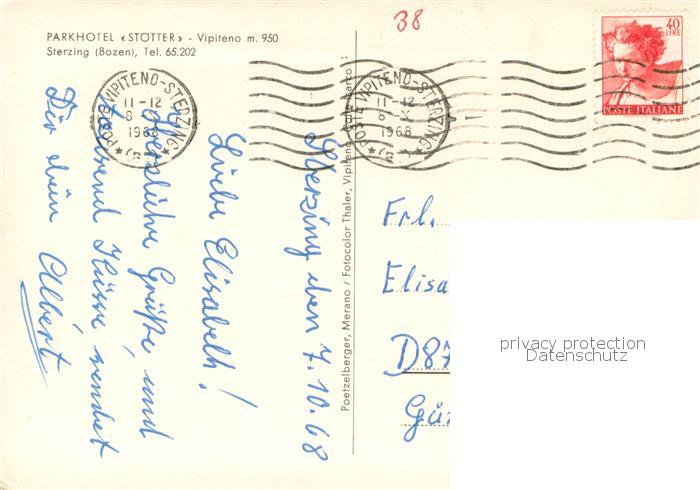 PARKHOTEL «STÖTTER» - Vipiteno m. 950
Sterzing (Bozen), Tel. 65.202
38
POSTE VIPITENO-STERZING
11-12
8 X
1968
POSTE VIPITENO-STERZING
11-12
8-X
1968
40
LIRE
POSTE ITALIANE
Sterzing den 7.10.68
Liebe Elisabeth!
Herzliche Grüße, und
tausend Küsse sendet
Dir dein Albert
Poetzelberger, Merano / Fotocolor Thaler, Vipiteno
Frl.
Elisa
D87
Gün
privacy protection
Datenschutz